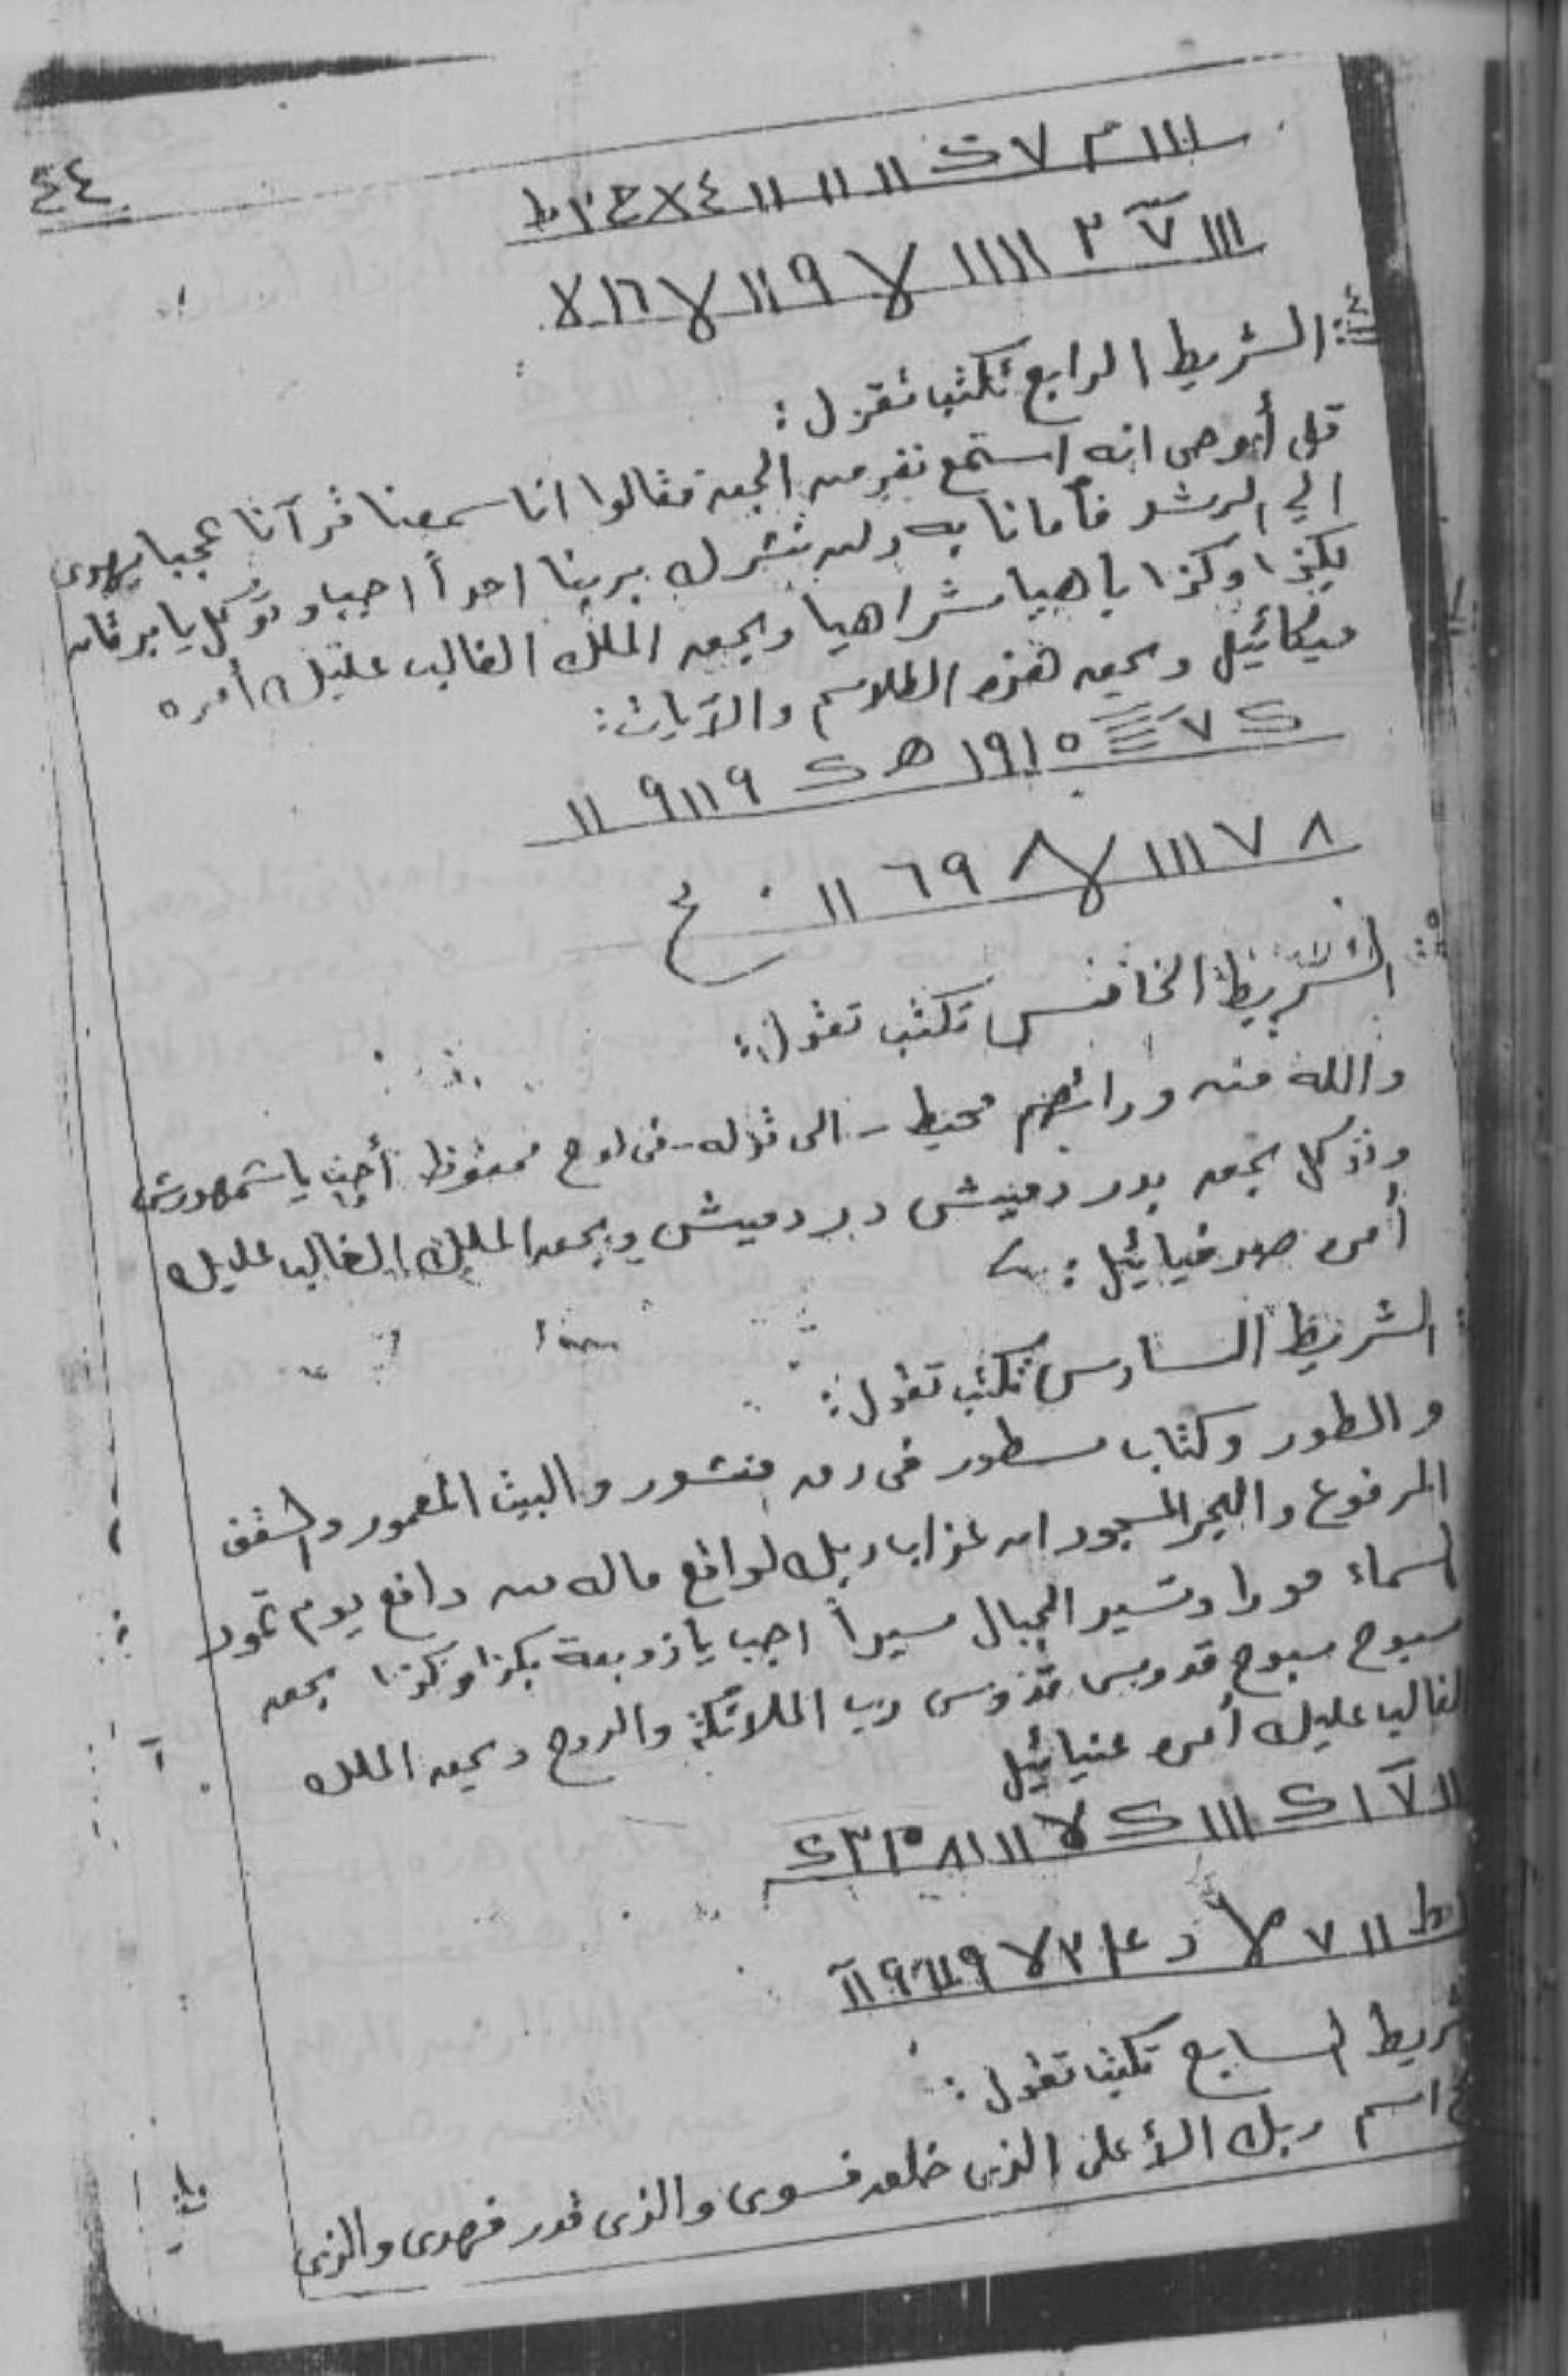 ٤٤
ااا م ٧ ى اا اا اا ٤ X ح ٣ ط
ااا ٧ ٣ اااا لا ٩ ااا لا ١٦ لا
الشريط الرابع تكتب تقول :
قل أوحى انه استمع نفر من الجن فقالوا انا سمعنا قرآنا عجبا يهدى
الي الرشد فآمانا به ولن نشرك بربنا احداً اجب وتوكل يا برقان
بكذا وكذا باهيا شراهيا وبحق الملك الغالب عليك أمره
ميكائيل وبحق هذه الطلاسم والآيات :
١٩١٥ ھ ٩١١٩ اا
٨ ٧ ااا لا ٨ ٦٩ اا ح
٥
الشريط الخامس تكتب تقول :
والله من ورائهم محيط - الى قوله - فى لوح محفوظ أجب يا شمهورش
وتوكل بحق بدردميش دردميش وبحق الملك الغالب عليك
أمره صرفيائيل :
الشريط السادس تكتب تقول :
والطور وكتاب مسطور فى رق منشور والبيت المعمور والسقف
المرفوع والبحر المسجور ان عذاب ربك لواقع ماله من دافع يوم تمور
السماء مورا وتسير الجبال سيراً اجب يا زوبعة بكذا وكذا بحق
سبوح سبوح قدوس قدوس رب الملائكة والروح وبحق الملك
الغالب عليك أمره عنيائيل
شريط السابع تكتب تقول :
اسم ربك الأعلى الذى خلق فسوى والذى قدر فهدى والذى